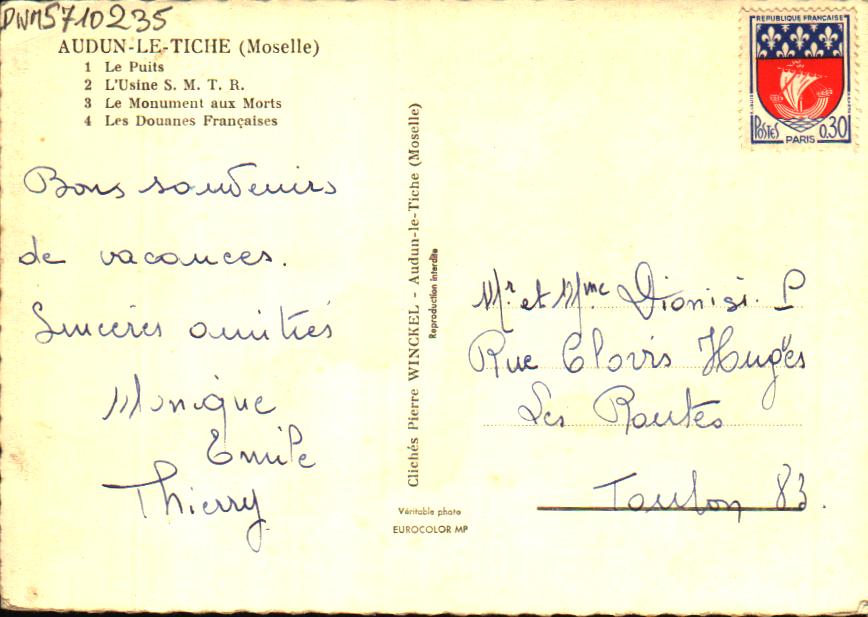 DWM5710235
AUDUN-LE-TICHE (Moselle)
1 Le Puits
2 L'Usine S. M. T. R.
3 Le Monument aux Morts
4 Les Douanes Françaises
Bons souvenirs
de vacances.
Sincères amitiés
Monique
Emile
Thierry
Clichés Pierre WINCKEL - Audun-le-Tiche (Moselle)
Reproduction interdite
Véritable photo
EUROCOLOR MP
REPUBLIQUE FRANÇAISE
POSTES
0,30
PARIS
Mr et Mme Dionisi. P
Rue Clovis Hugues
Les Routes
Toulon 83.